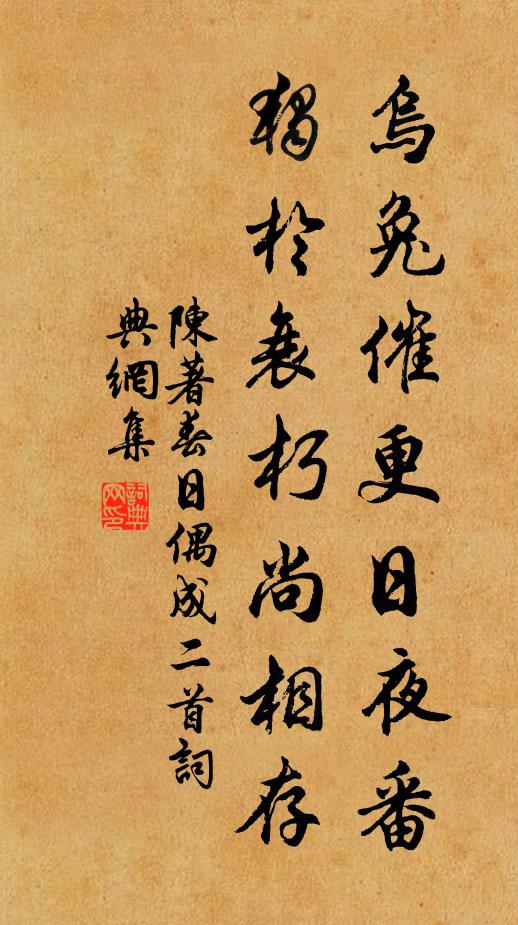 烏兔催更日夜番
獨於衰朽尚相存
陳著春日偶成二首詞
典網集
詞典